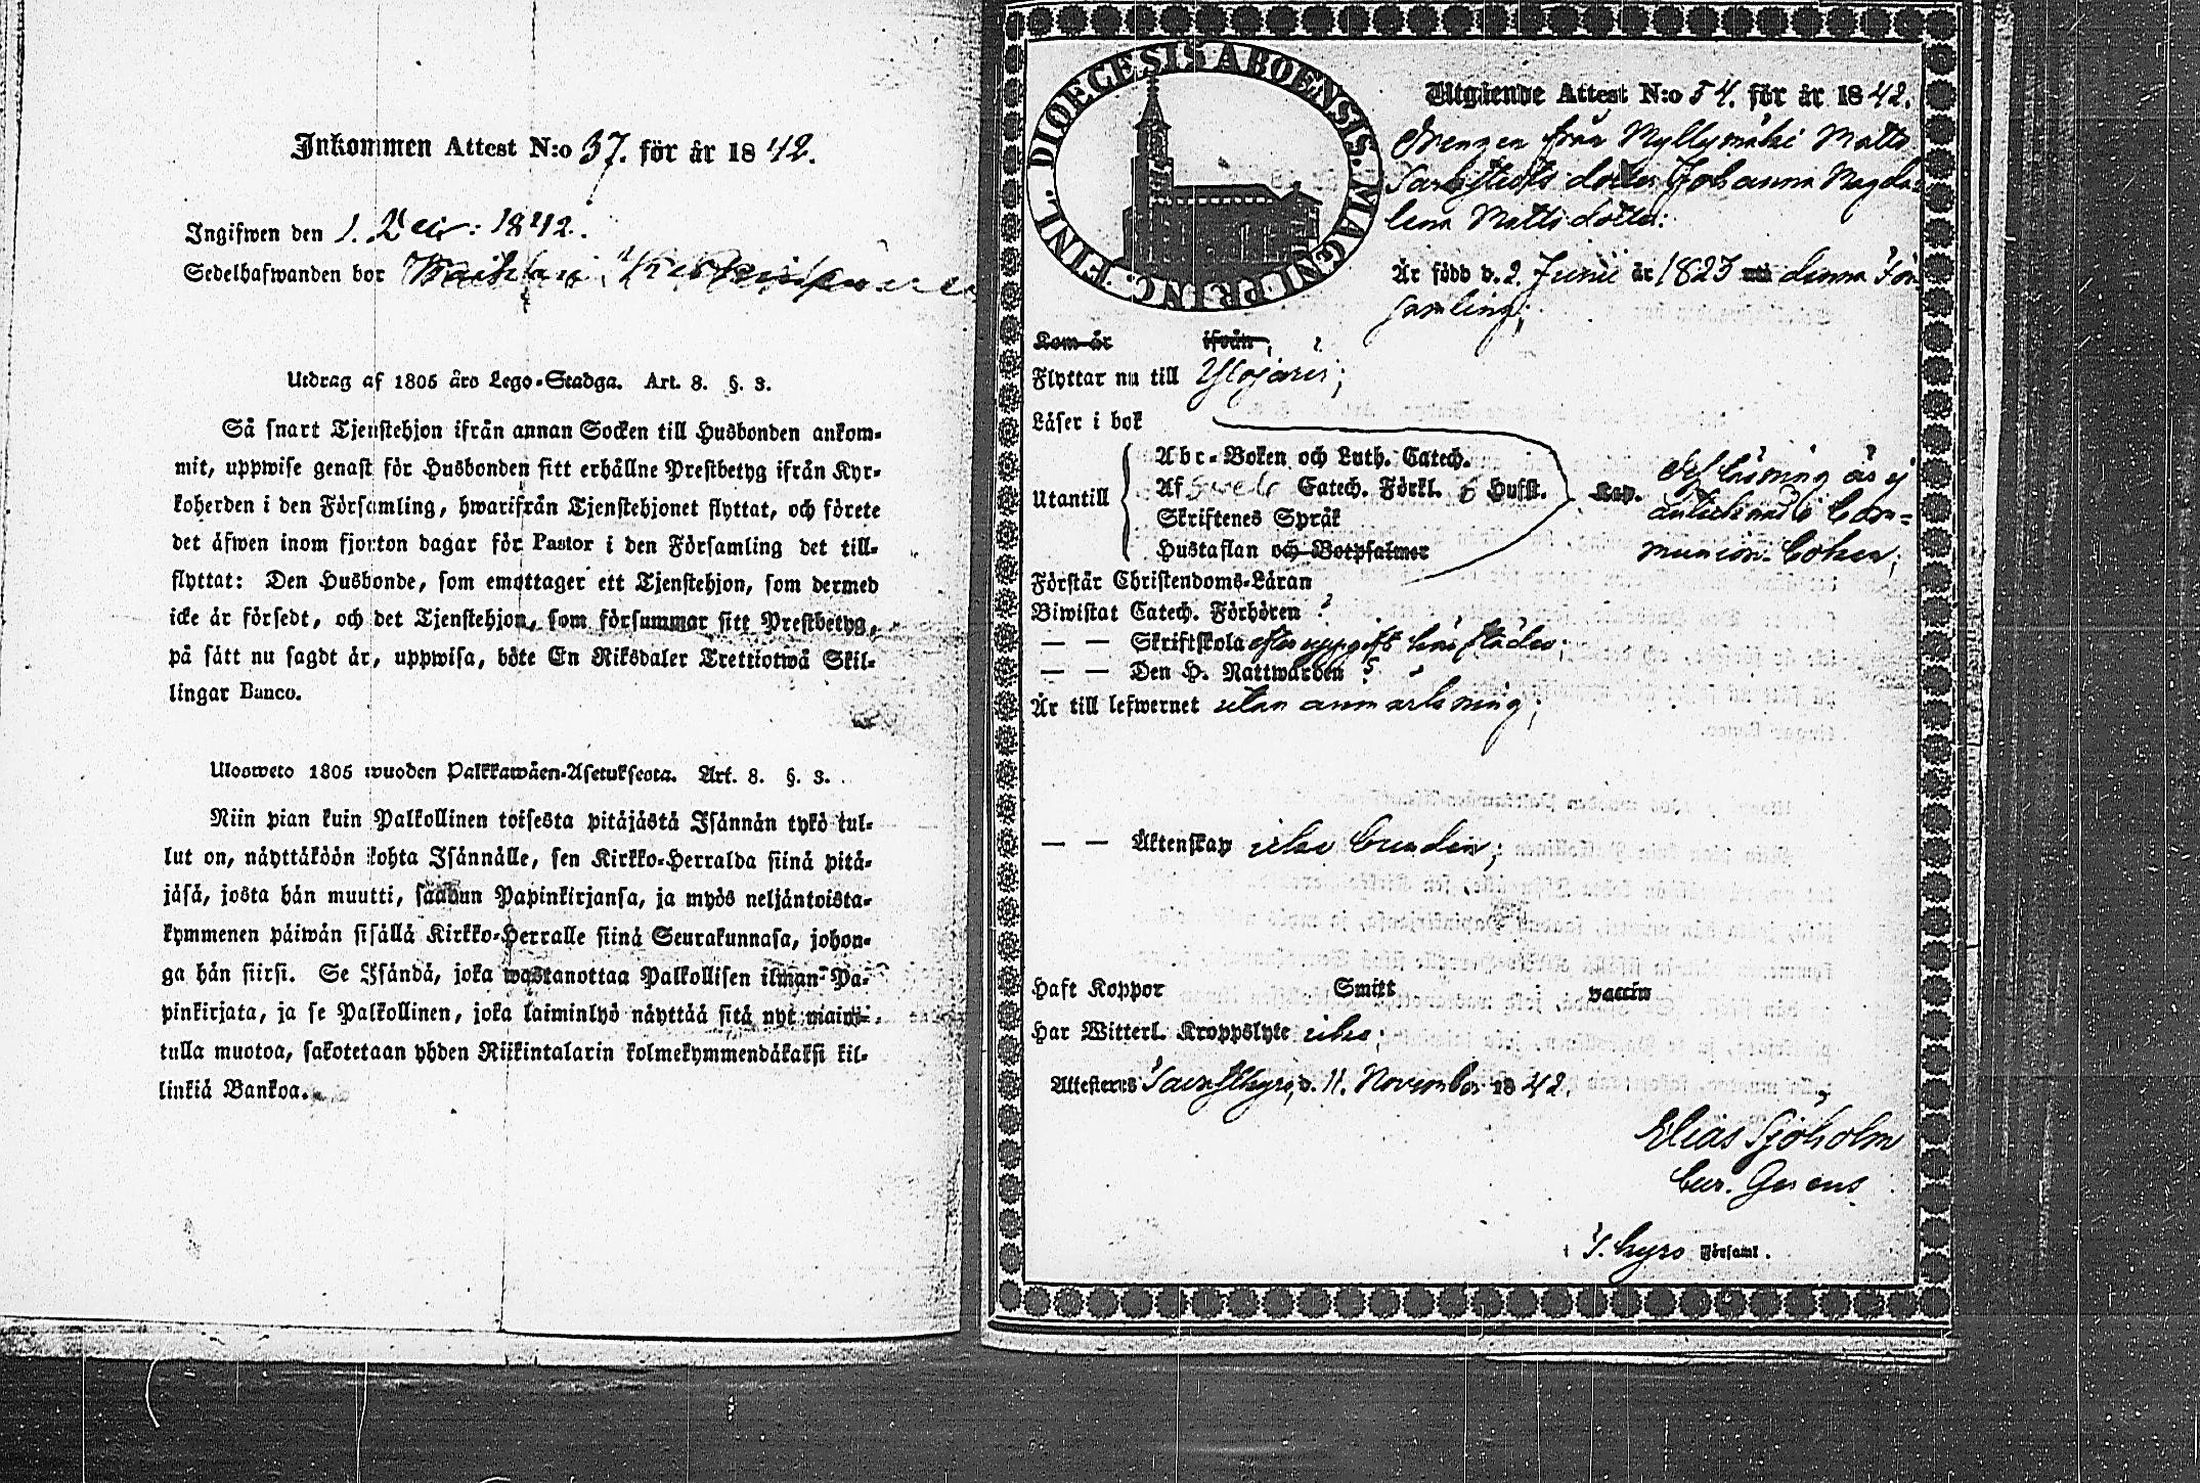 Inkommen Attest N:o 37. för år 1842.
Ingifwen den 1. Decbr: 1842.
Sedelhafwanden bor
Utdrag af 1805 års Lego-Stadga. Art. 8. §. 3.
Så snart Tjenstehjon ifrån annan Socken till Husbonden ankom-
mit, uppwise genast för Husbonden sitt erhållne Prestbetyg ifrån Kyr-
koherden i den Församling, hwarifrån Tjenstehjonet flyttat, och förete
det äfwen inom fjorton dagar för Pastor i den Församling det till-
flyttat: Den Husbonde, som emottager ett Tjenstehjon, som dermed
icke är försedt, och det Tjenstehjon, som försummar sitt Prestbetyg,
på sätt nu sagdt är, uppwisa, böte En Riksdaler Trettiotwå Skil-
lingar Banco.
Ulosweto 1805 wuoden Palkkawäen-Asetuksesta. Art. 8. §. 3.
Niin pian kuin Palkollinen toisesta pitäjästä Isännän tykö tul-
lut on, näyttäköön kohta Isännälle, sen Kirkko-Herralda siinä pitä-
jäsä, josta hän muutti, saadun Papinkirjansa, ja myös neljäntoista-
kymmenen päiwän sisällä Kirkko-Herralle siinä Seurakunnasa, johon-
ga hän siirsi. Se Isändä, joka wastanottaa Palkollisen ilman Pa-
pinkirjata, ja se Palkollinen, joka laiminlyö näyttää sitä nyt maini-
tulla muotoa, sakotetaan yhden Riikintalarin kolmekymmendäkaksi kil-
linkiä Bankoa.
FINL. DIOECESIS ABOENSIS. MAGNI PRINC.
Utgående Attest N:o 54. för år 1842.
Drengen från Myllymäki Matts
dotter Johanna Magda-
lena Mattsdotter:
Är född d. 2. Junii år 1823 denna För-
samling;
Kom år ifrån
Flyttar nu till Ylöjärvi;
Läser i bok
Utantill
Abc-Boken och Luth. Catech.
Af Catech. Förkl. 6 Hufst. Kap.
Skriftenes Språk
Hustaflan och Botpsalmer
Läsning är ej
antecknad i Com-
munion-boken;
Förstår Christendoms-Läran
Biwistat Catech. Förhören ?
— — Skriftskola efter uppgift härstädes.
— — Den H. Nattwarden ?
Är till lefwernet utan anmärkning;
— — Äktenskap icke bunden;
Haft Koppor Smitt vaccin
Har Witterl. Kroppslyte icke;
Attesteras Tavastkyro, d. 11. November 1842.
Elias Sjöholm
Cur. Gerens.
i T. kyro Församl.